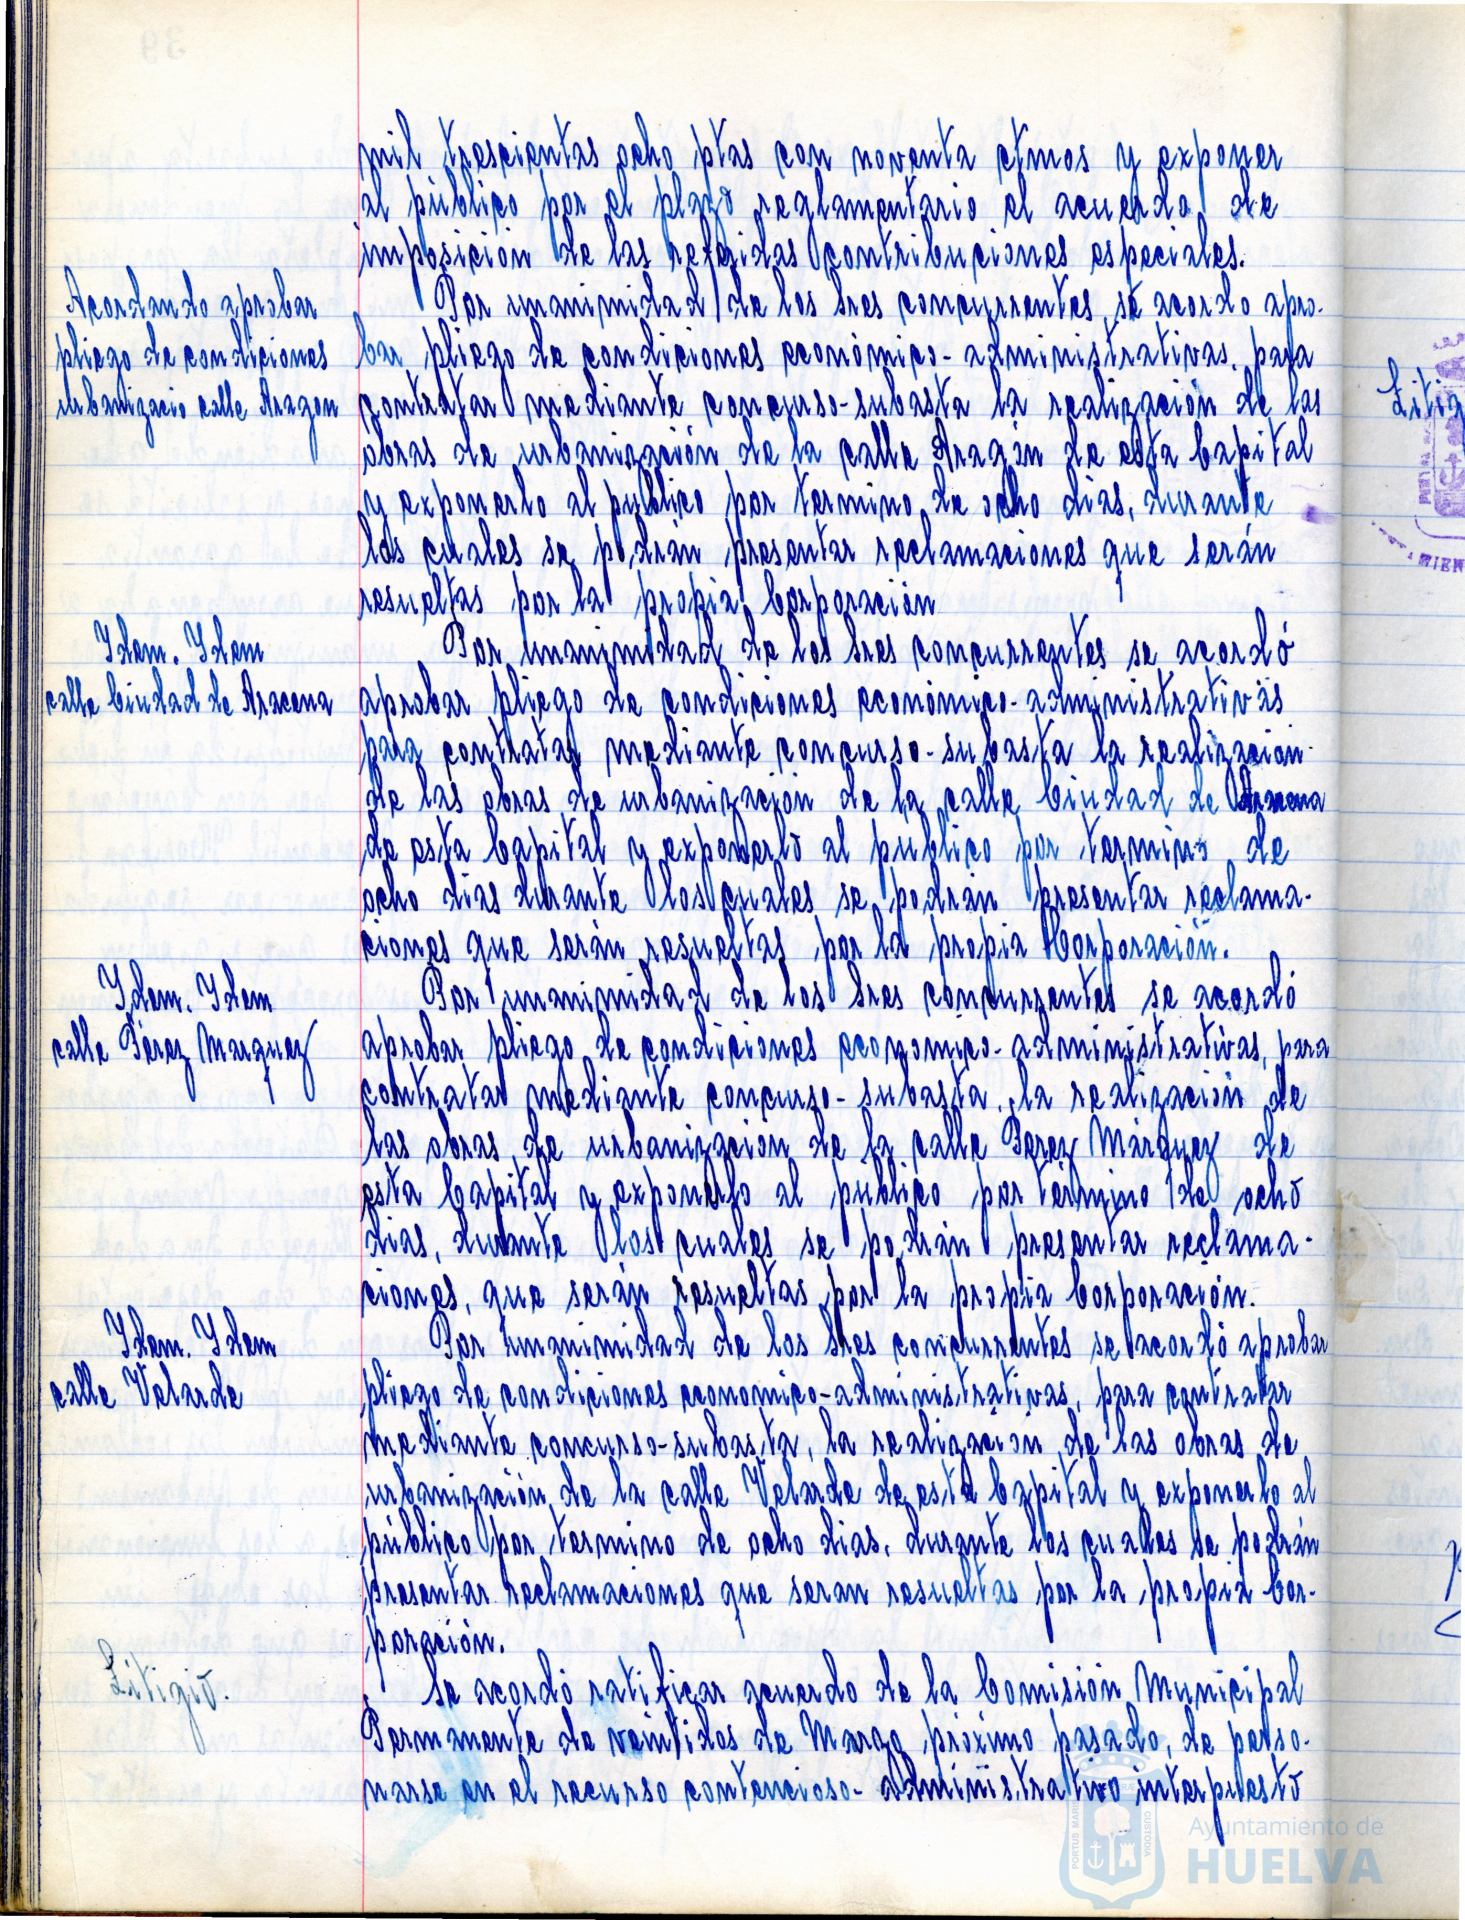 mil trescientas ocho ptas con noventa ctmos y exponer
al público por el plazo reglamentario el acuerdo de
imposición de las referidas contribuciones especiales.
Acordando aprobar
pliego de condiciones
urbanizacio calle Aragon
Por unanimidad de los sres concurrentes, se acordo apro-
bar pliego de condiciones económico-administrativas, para
contratar mediante concurso-subasta la realización de las
obras de urbanización de la calle Aragón de esta Capital
y exponerlo al publico por termino de ocho dias, durante
los cuales se podrán presentar reclamaciones que serán
resueltas por la propia Corporación
Idem. Idem
calle Ciudad de Aracena
Por unanimidad de los sres concurrentes se acordó
aprobar pliego de condiciones económico-administrativas
para contratar mediante concurso-subasta la realización
de las obras de urbanización de la calle Ciudad de Aracena
de esta Capital y exponerlo al publico por termino de
ocho dias durante los cuales se podrán presentar reclama-
ciones que serán resueltas por la propia Corporación.
Idem. Idem
calle Pérez Marquez
Por unanimidad de los sres concurrentes se acordó
aprobar pliego de condiciones economico-administrativas, para
contratar mediante concurso-subasta, la realización de
las obras de urbanización de la calle Perez Márquez de
esta Capital y exponerlo al público por término de ocho
dias, durante los cuales se podrán presentar reclama-
ciones, que serán resueltas por la propia Corporación.
Idem. Idem
calle Velarde
Por unanimidad de los sres concurrentes se acordó aprobar
pliego de condiciones economico-administrativas, para contratar
mediante concurso-subasta, la realización de las obras de
urbanización de la calle Velarde de esta Capital y exponerlo al
público por termino de ocho dias, durante los cuales se podrán
presentar reclamaciones que seran resueltas por la propia Cor-
poración.
Litigio.
Se acordó ratificar acuerdo de la Comisión Municipal
Permanente de veintidos de Marzo próximo pasado, de perso-
narse en el recurso contencioso-administrativo interpuesto
Ayuntamiento de
HUELVA